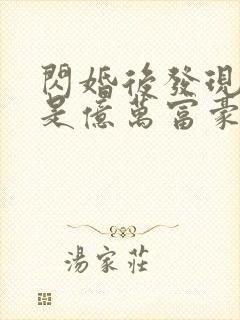 閃婚後發現
是億萬富豪
湯家莊